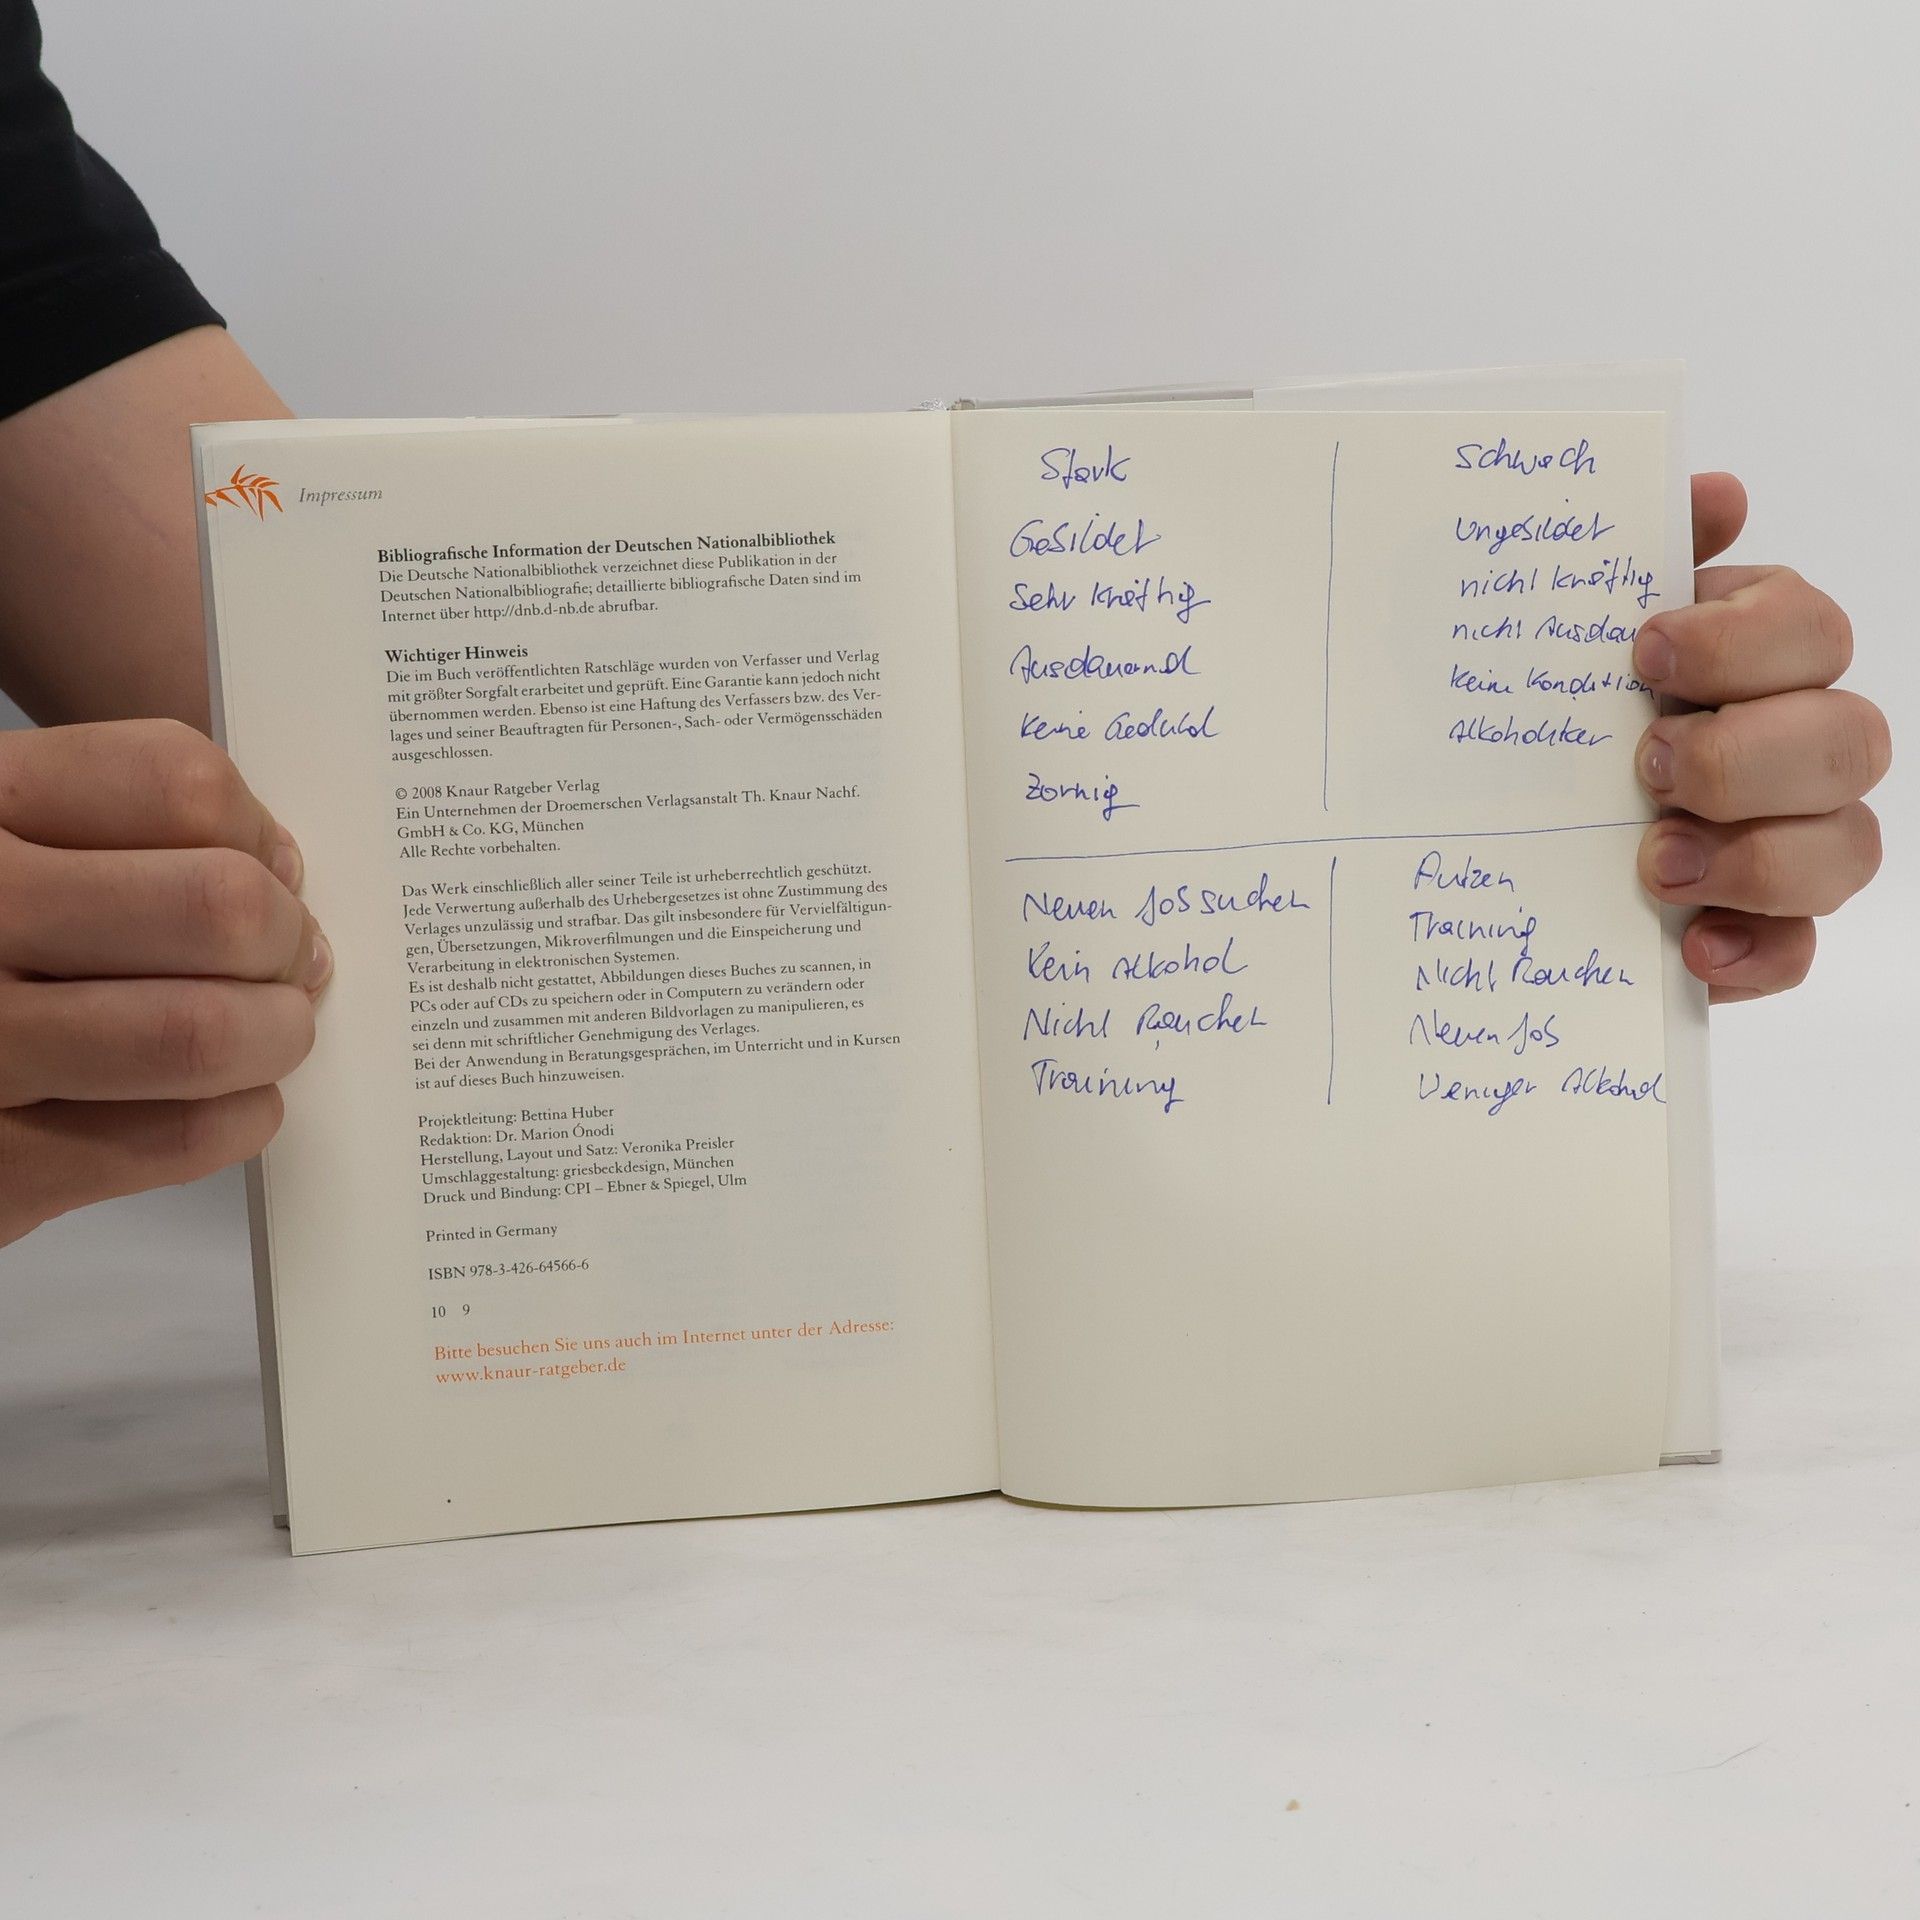 Impressum
Bibliografische Information der Deutschen Nationalbibliothek
Die Deutsche Nationalbibliothek verzeichnet diese Publikation in der
Deutschen Nationalbibliografie; detaillierte bibliografische Daten sind im
Internet über http://dnb.d-nb.de abrufbar.
Wichtiger Hinweis
Die im Buch veröffentlichten Ratschläge wurden von Verfasser und Verlag
mit größter Sorgfalt erarbeitet und geprüft. Eine Garantie kann jedoch nicht
übernommen werden. Ebenso ist eine Haftung des Verfassers bzw. des Ver-
lages und seiner Beauftragten für Personen-, Sach- oder Vermögensschäden
ausgeschlossen.
© 2008 Knaur Ratgeber Verlag
Ein Unternehmen der Droemerschen Verlagsanstalt Th. Knaur Nachf.
GmbH & Co. KG, München
Alle Rechte vorbehalten.
Das Werk einschließlich aller seiner Teile ist urheberrechtlich geschützt.
Jede Verwertung außerhalb des Urhebergesetzes ist ohne Zustimmung des
Verlages unzulässig und strafbar. Das gilt insbesondere für Vervielfältigun-
gen, Übersetzungen, Mikroverfilmungen und die Einspeicherung und
Verarbeitung in elektronischen Systemen.
Es ist deshalb nicht gestattet, Abbildungen dieses Buches zu scannen, in
PCs oder auf CDs zu speichern oder in Computern zu verändern oder
einzeln und zusammen mit anderen Bildvorlagen zu manipulieren, es
sei denn mit schriftlicher Genehmigung des Verlages.
Bei der Anwendung in Beratungsgesprächen, im Unterricht und in Kursen
ist auf dieses Buch hinzuweisen.
Projektleitung: Bettina Huber
Redaktion: Dr. Marion Ónodi
Herstellung, Layout und Satz: Veronika Preisler
Umschlaggestaltung: griesbeckdesign, München
Druck und Bindung: CPI – Ebner & Spiegel, Ulm
Printed in Germany
ISBN 978-3-426-64566-6
10 9
Bitte besuchen Sie uns auch im Internet unter der Adresse:
www.knaur-ratgeber.de
Stark
Gebildet
Sehr kräftig
Ausdauernd
keine Geduld
Zornig
Schwach
Ungebildet
nicht kräftig
nicht Ausdau
keine Kondition
Alkoholiker
Neuen Job suchen
Kein Alkohol
Nicht Rauchen
Training
Putzen
Training
Nicht Rauchen
Neuen Job
Weniger Alkohol